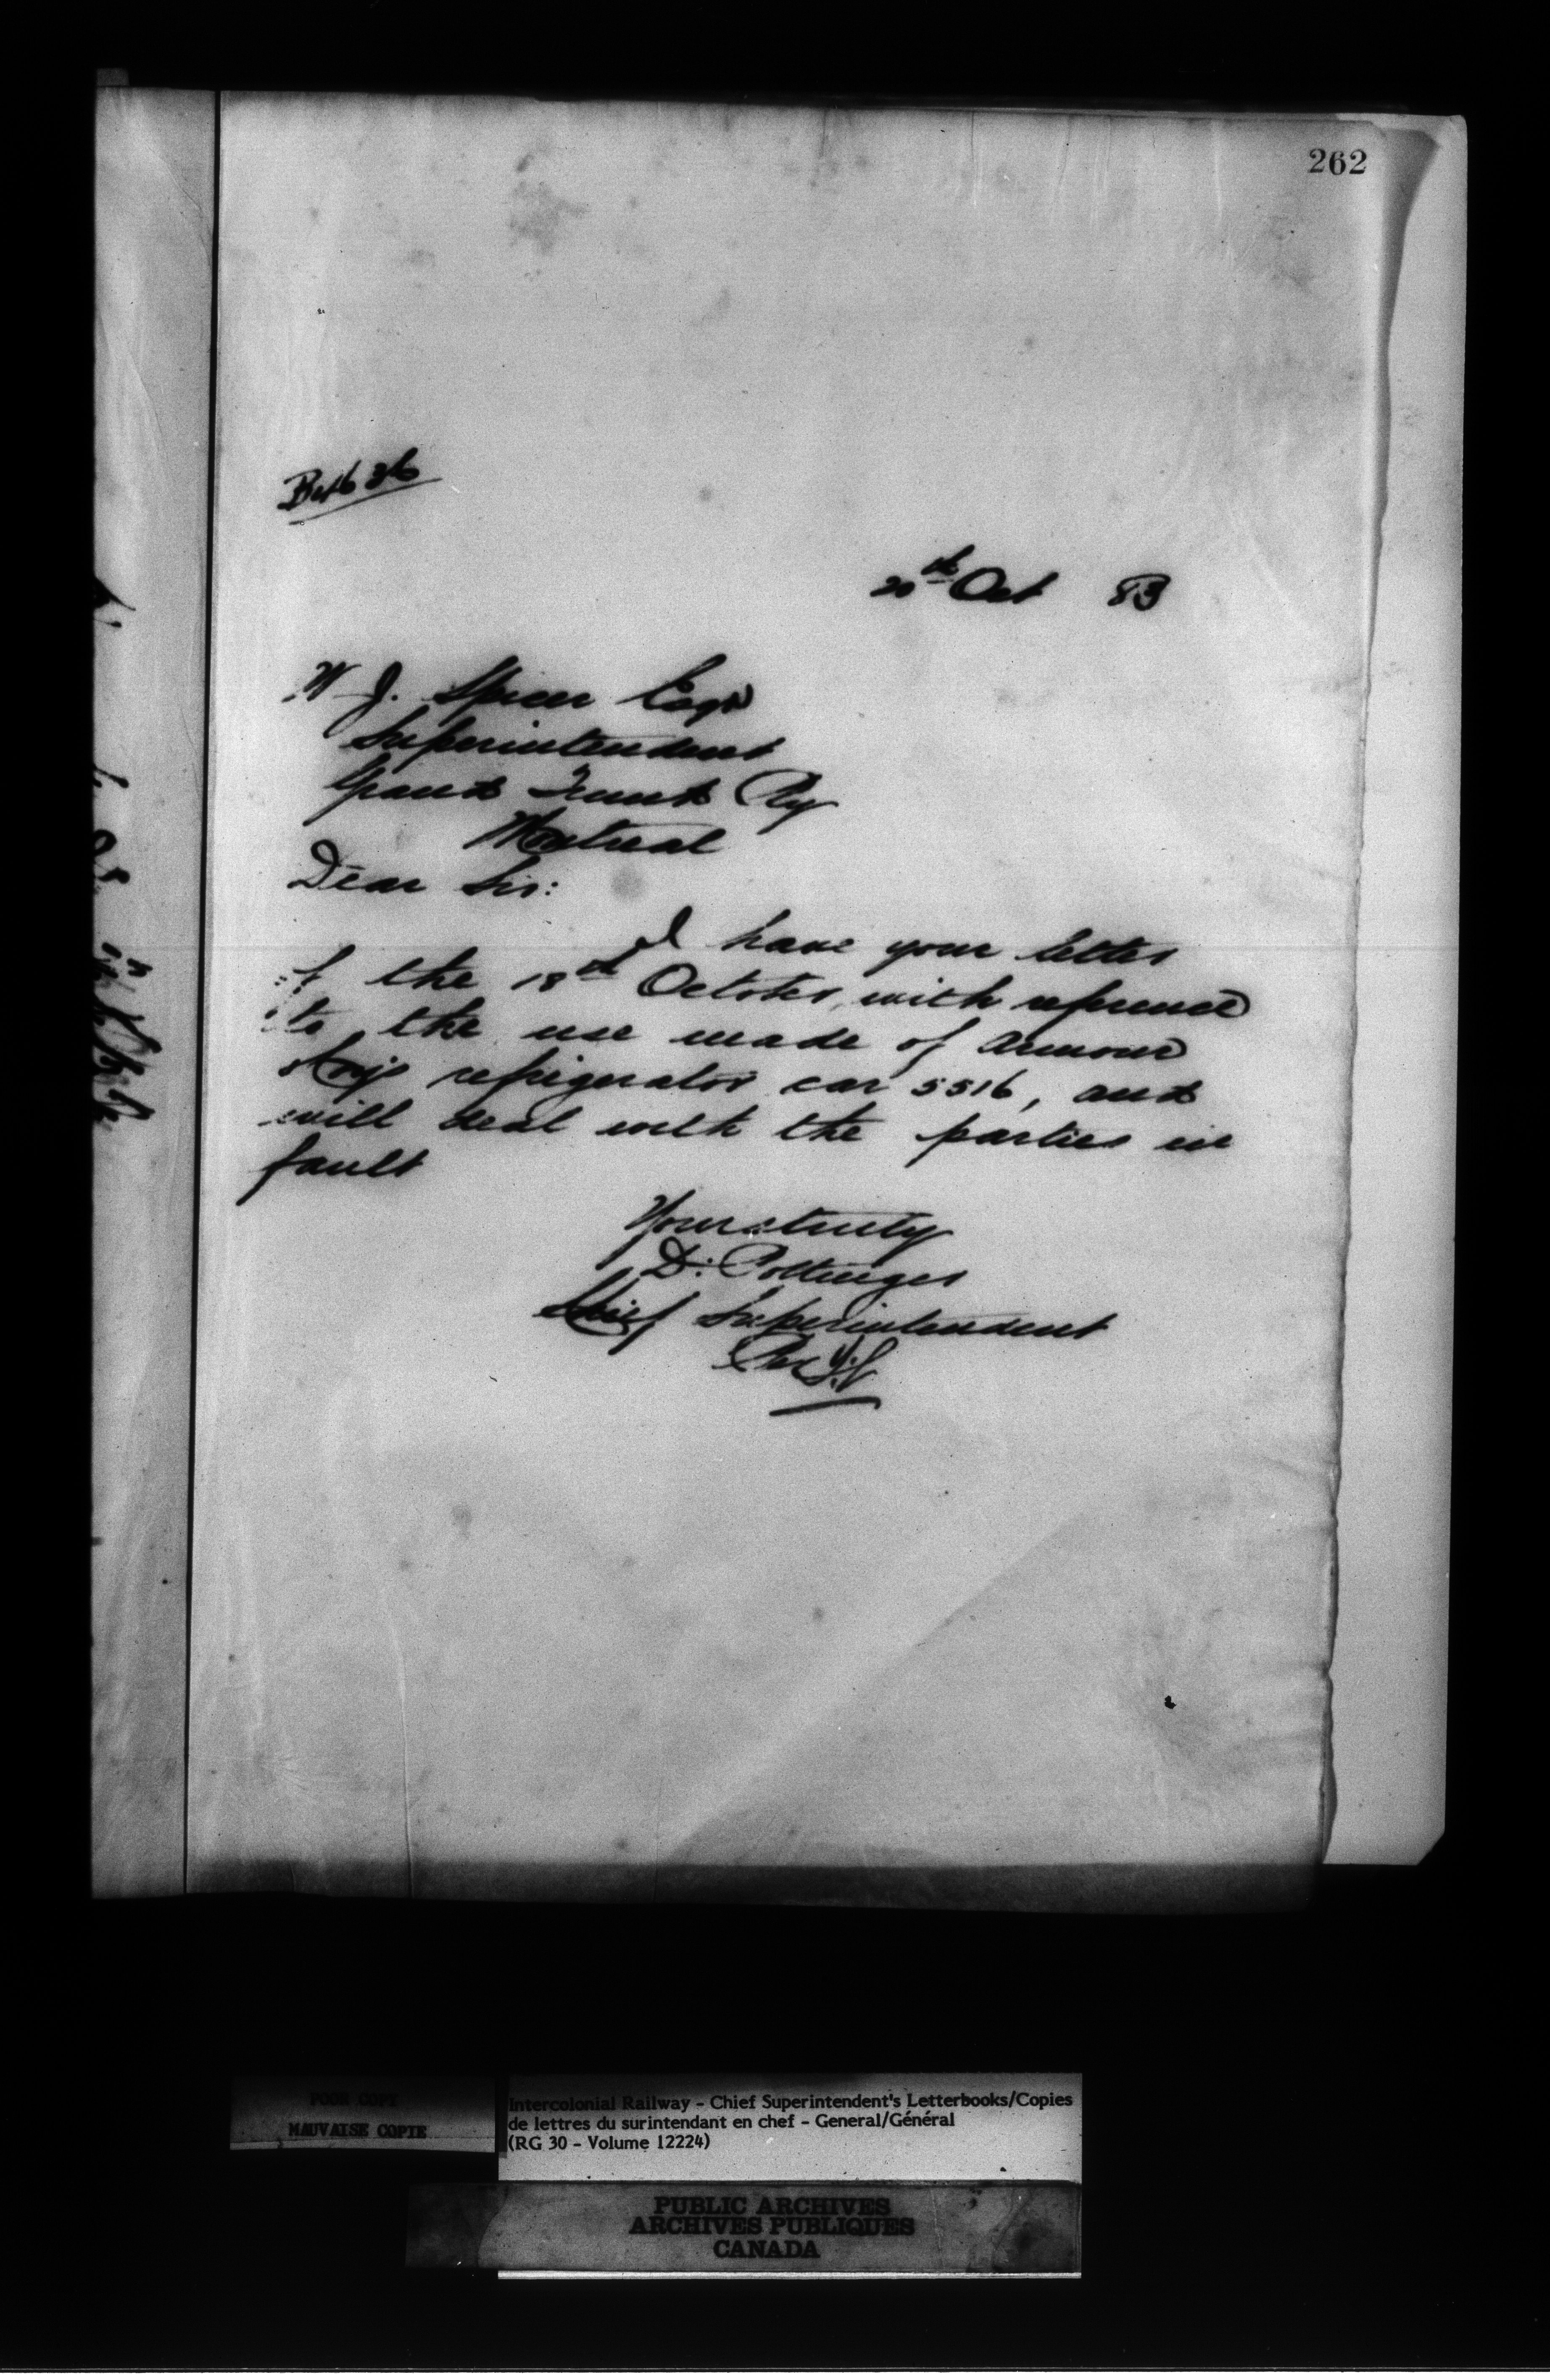 262
20th Oct 83
W J. Spicer Esqr
Superintendent
Grand Trunk Ry
Montreal
Dear Sir:
I have your letter
of the 18th October, with reference
to the use made of Armour
refrigerator car 5516, and
will deal with the parties in
fault
Yours truly
D. Pottinger
Chief Superintendent
Per
POOR COPY
MAUVAISE COPIE
Intercolonial Railway - Chief Superintendent's Letterbooks/Copies
de lettres du surintendant en chef - General/Général
(RG 30 - Volume 12224)
PUBLIC ARCHIVES
ARCHIVES PUBLIQUES
CANADA